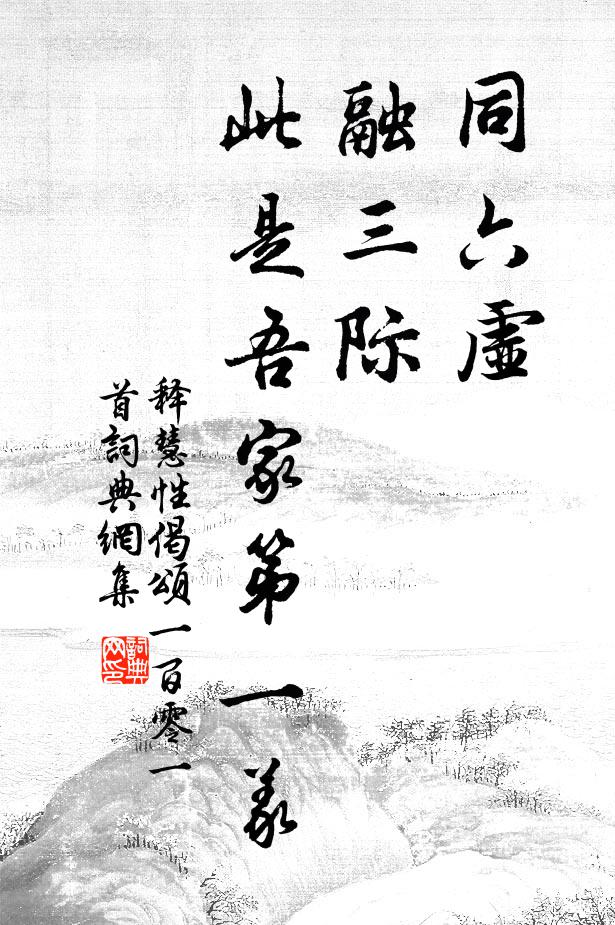 同六虛
融三际
此是吾家第一义
释慧性偈頌一百零一
首詞典網集
詞典
网印